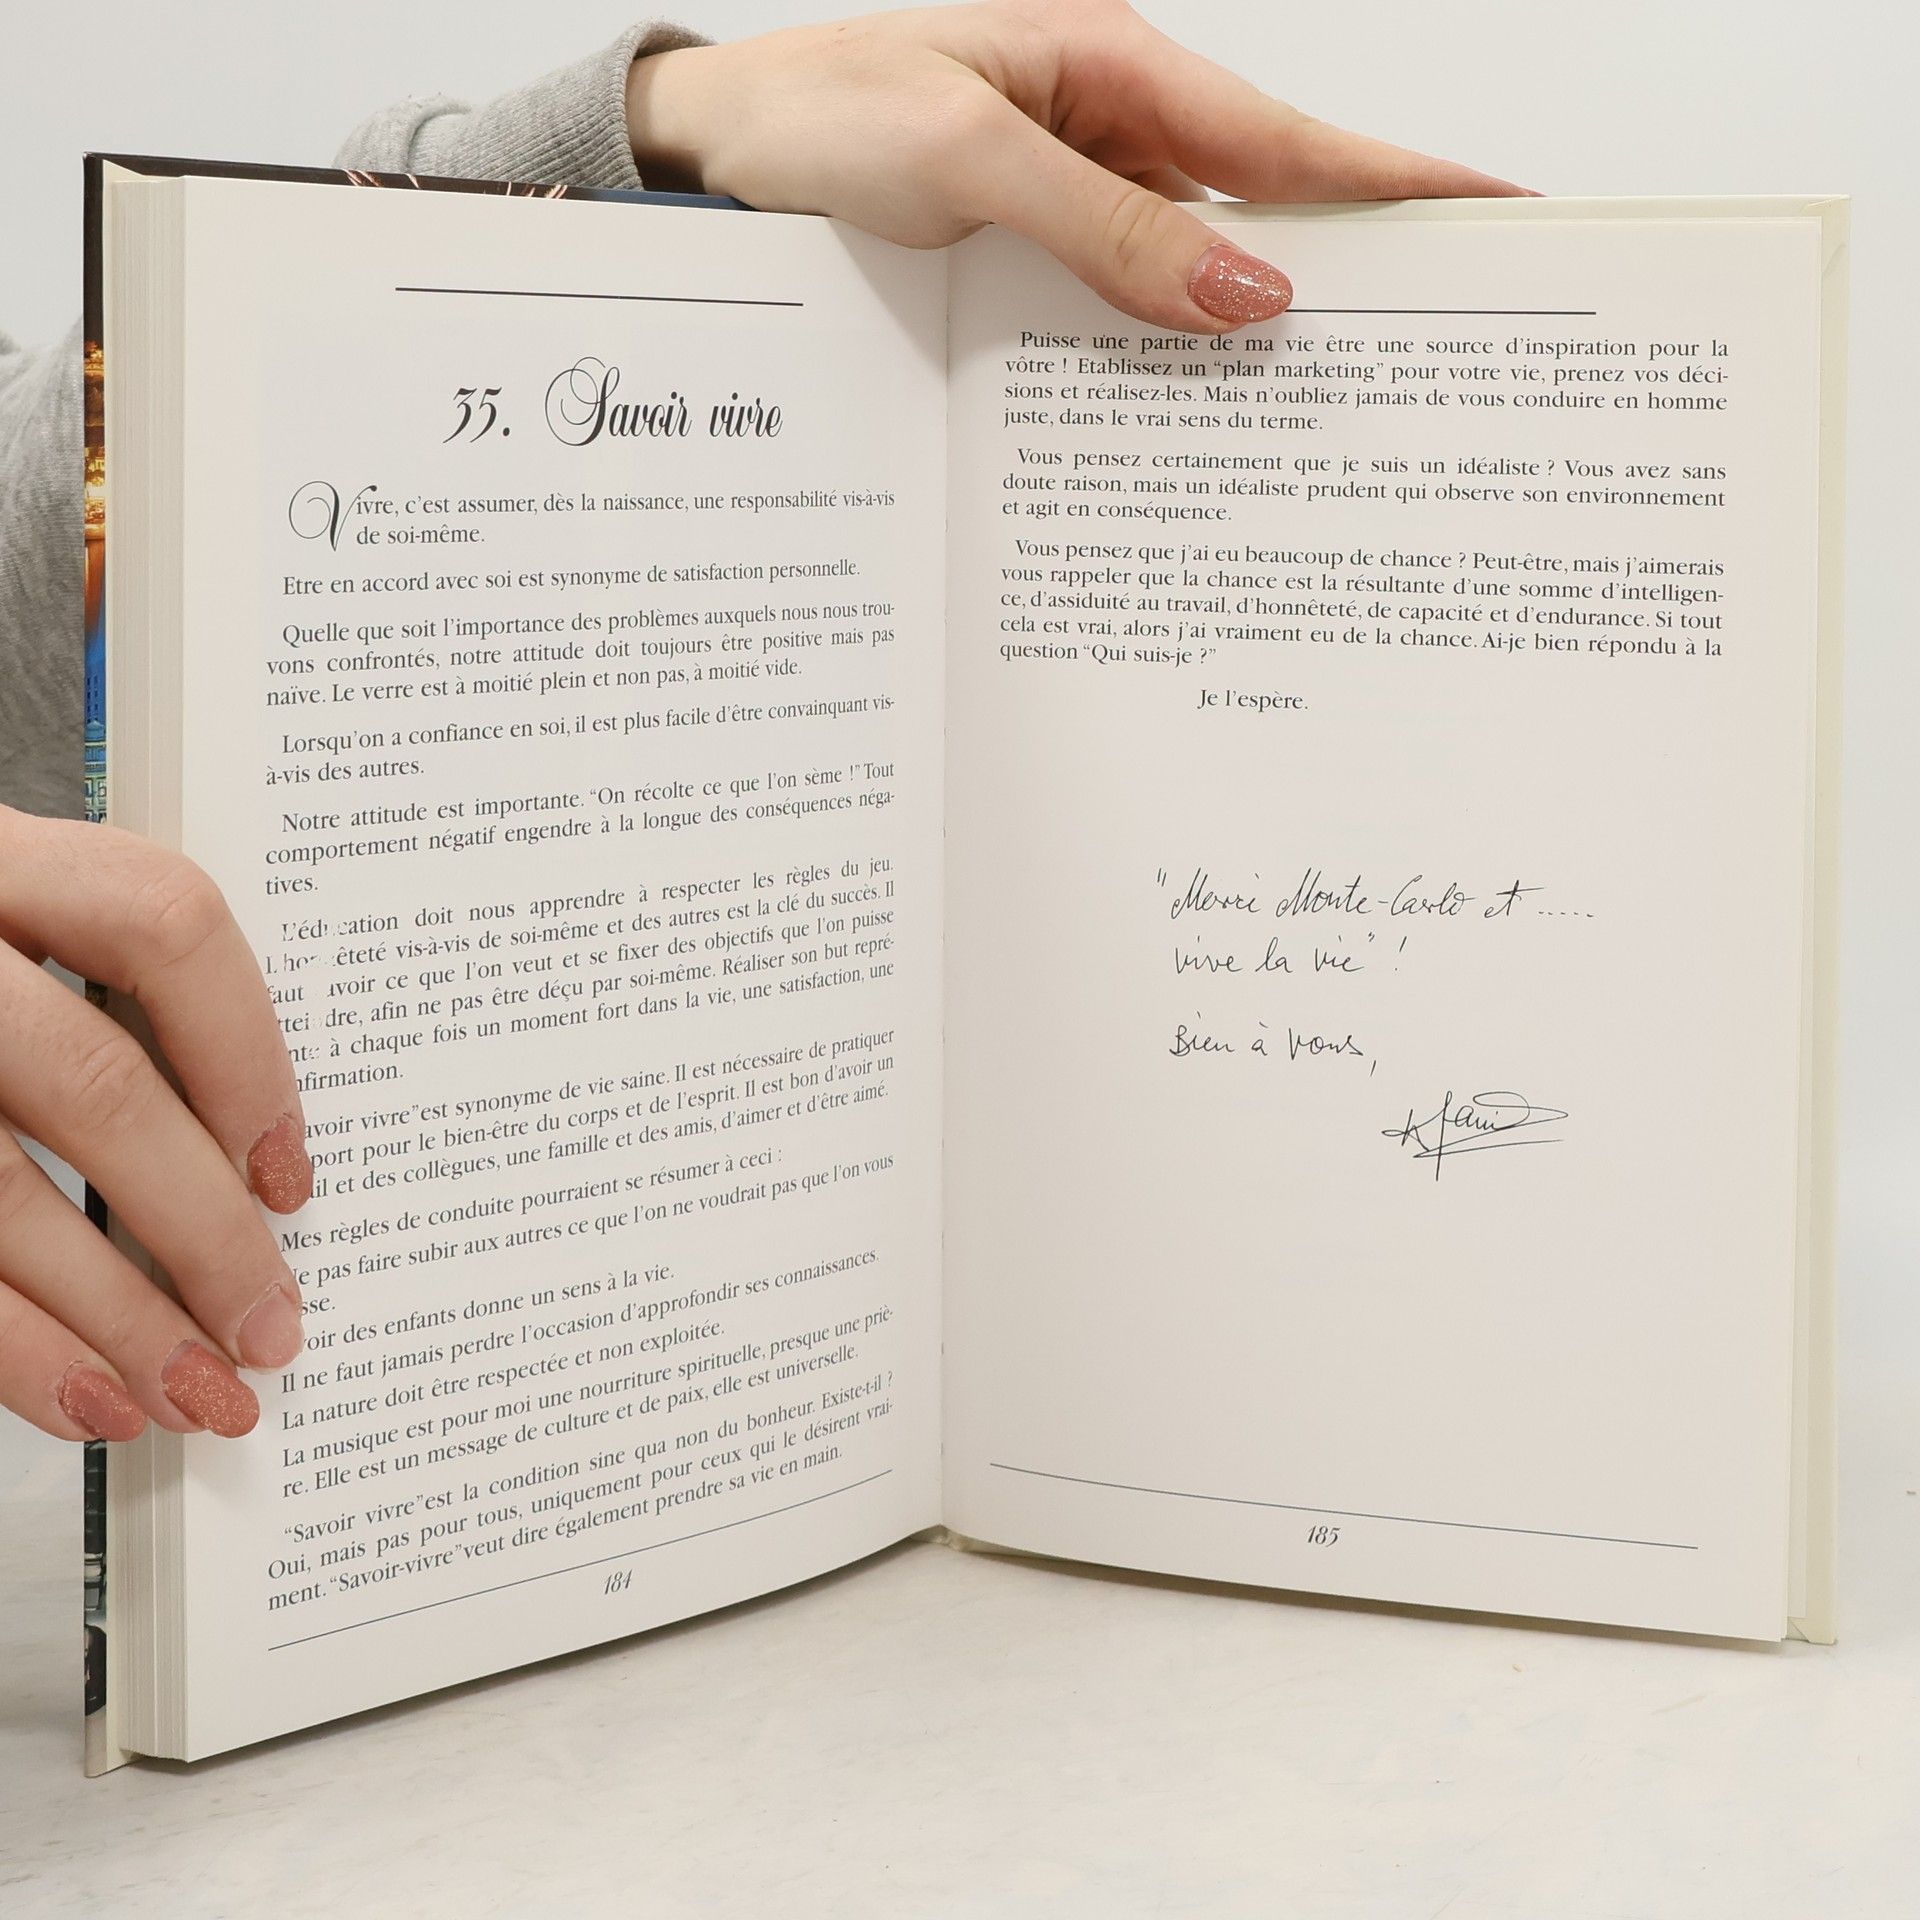 35. Savoir vivre
Vivre, c'est assumer, dès la naissance, une responsabilité vis-à-vis
de soi-même.
Etre en accord avec soi est synonyme de satisfaction personnelle.
Quelle que soit l'importance des problèmes auxquels nous nous trou-
vons confrontés, notre attitude doit toujours être positive mais pas
naïve. Le verre est à moitié plein et non pas, à moitié vide.
Lorsqu'on a confiance en soi, il est plus facile d'être convainquant vis-
à-vis des autres.
Notre attitude est importante. "On récolte ce que l'on sème !" Tout
comportement négatif engendre à la longue des conséquences néga-
tives.
L'éducation doit nous apprendre à respecter les règles du jeu.
L'honnêteté vis-à-vis de soi-même et des autres est la clé du succès. Il
faut savoir ce que l'on veut et se fixer des objectifs que l'on puisse
atteindre, afin ne pas être déçu par soi-même. Réaliser son but repré-
à chaque fois un moment fort dans la vie, une satisfaction, une
nfirmation.
avoir vivre" est synonyme de vie saine. Il est nécessaire de pratiquer
port pour le bien-être du corps et de l'esprit. Il est bon d'avoir un
il et des collègues, une famille et des amis, d'aimer et d'être aimé.
Mes règles de conduite pourraient se résumer à ceci :
Ne pas faire subir aux autres ce que l'on ne voudrait pas que l'on vous
sse.
voir des enfants donne un sens à la vie.
Il ne faut jamais perdre l'occasion d'approfondir ses connaissances.
La nature doit être respectée et non exploitée.
La musique est pour moi une nourriture spirituelle, presque une priè-
re. Elle est un message de culture et de paix, elle est universelle.
"Savoir vivre" est la condition sine qua non du bonheur. Existe-t-il ?
Oui, mais pas pour tous, uniquement pour ceux qui le désirent vrai-
ment. "Savoir-vivre" veut dire également prendre sa vie en main.
184
Puisse une partie de ma vie être une source d'inspiration pour la
vôtre ! Etablissez un "plan marketing" pour votre vie, prenez vos déci-
sions et réalisez-les. Mais n'oubliez jamais de vous conduire en homme
juste, dans le vrai sens du terme.
Vous pensez certainement que je suis un idéaliste ? Vous avez sans
doute raison, mais un idéaliste prudent qui observe son environnement
et agit en conséquence.
Vous pensez que j'ai eu beaucoup de chance ? Peut-être, mais j'aimerais
vous rappeler que la chance est la résultante d'une somme d'intelligen-
ce, d'assiduité au travail, d'honnêteté, de capacité et d'endurance. Si tout
cela est vrai, alors j'ai vraiment eu de la chance. Ai-je bien répondu à la
question "Qui suis-je ?"
Je l'espère.
"Merci Monte-Carlo et .....
vive la vie" !
Bien à vous,
185